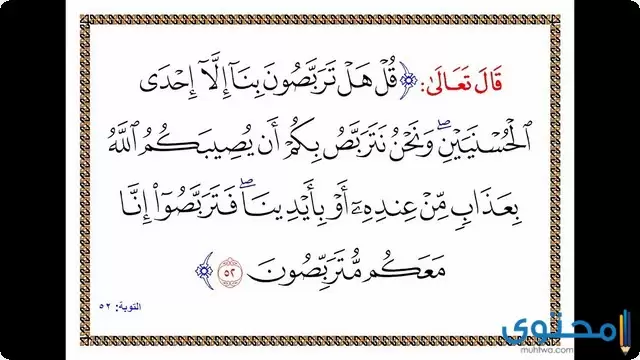 قَالَ تَعَالَىٰ: ﴿قُلْ هَلْ تَرَبَّصُونَ بِنَآ إِلَّآ إِحْدَى
ٱلْحُسْنَيَيْنِ ۖ وَنَحْنُ نَتَرَبَّصُ بِكُمْ أَن يُصِيبَكُمُ ٱللَّهُ
بِعَذَابٍ مِّنْ عِندِهِۦٓ أَوْ بِأَيْدِينَا ۖ فَتَرَبَّصُوٓا۟ إِنَّا
مَعَكُم مُّتَرَبِّصُونَ ٥٢﴾
التوبة: ٥٢
محتوى
muhtwa.com